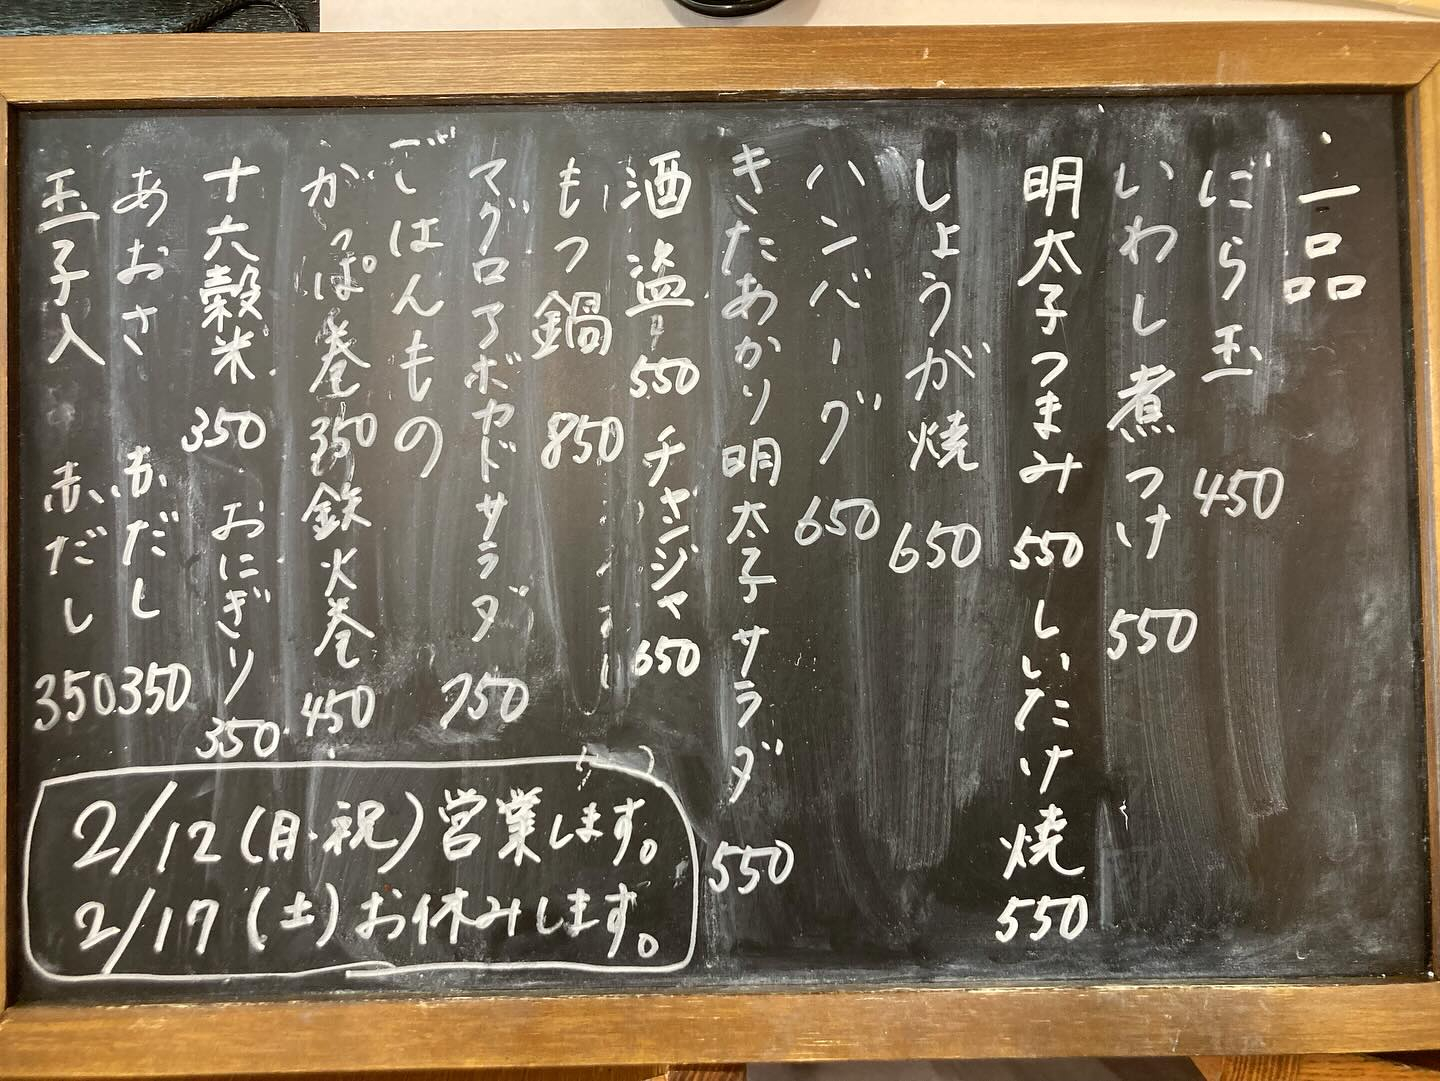 一品
にら玉 450
いわし煮つけ 550
明太子つまみ 550 しいたけ焼 550
しょうが焼 650
ハンバーグ 650
きたあかり明太子サラダ 550
酒盗 550 チャンジャ 550
もつ鍋 850
マグロアボカドサラダ 750
ごはんもの
かっぱ巻 350 鉄火巻 450
十六穀米 350 おにぎり 350
あおさ 赤だし 350
玉子入 赤だし 350
2/12(月・祝)営業します。
2/17(土)お休みします。